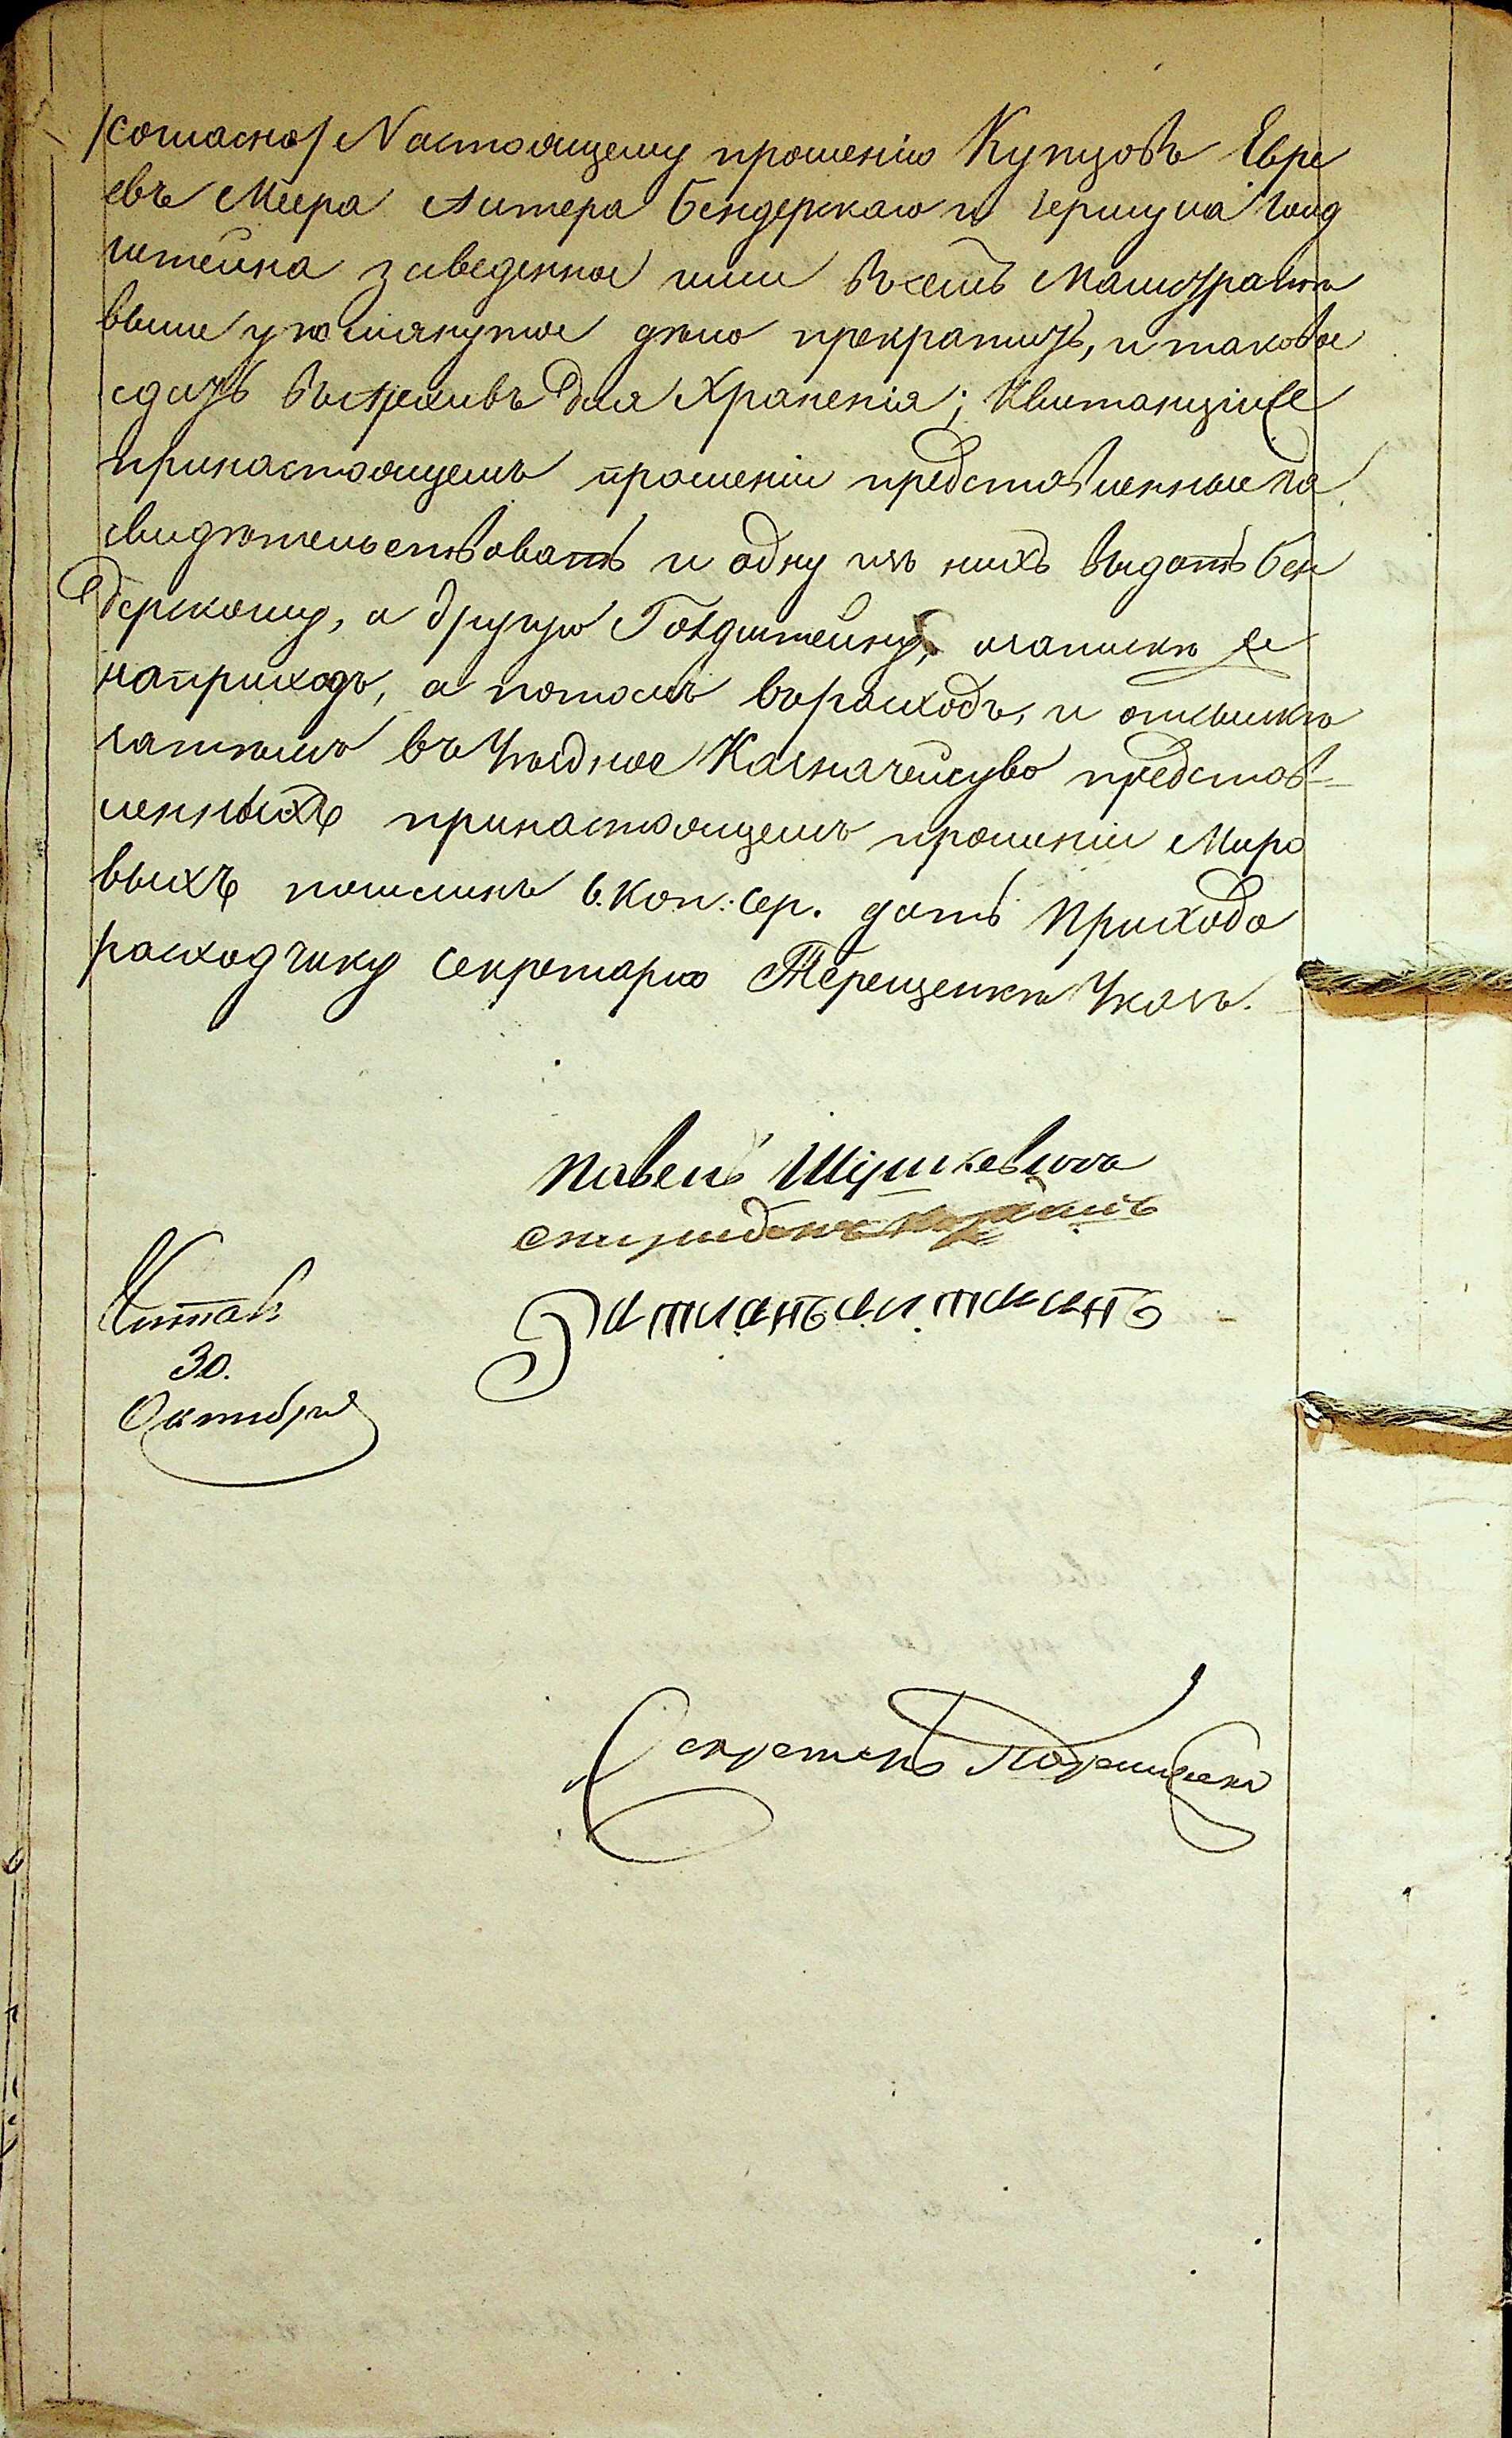 /согласно/ Настоящему прошенію Купцовъ Евре
евъ Меера Литера Бендерскаго и Гершуна Голд
штейна заведенное ими въ семъ Магистратѣ
выше упомянутое дѣло прекратить, и таковое
сдать въ Архивъ для Храненія; Квитанціи Ее
принастоящемъ прошеніи представленные за
свидѣтельствовать и одну изъ нихъ выдать Бен
дерскому, а другую Голдштейну, о запискѣ
наприходъ, а потомъ въ расходъ, и отсылкѣ
затѣмъ въ Уѣздное Казначейство представ-
ленныхъ принастоящемъ прошеніи Миро
выхъ пошлинъ 6. коп: сер. дать Приходо
расходчику Секретарю Терещенкѣ Указъ.
Павелъ
Спиридонъ
Читалъ
30.
Октября
Секретарь Терещенко